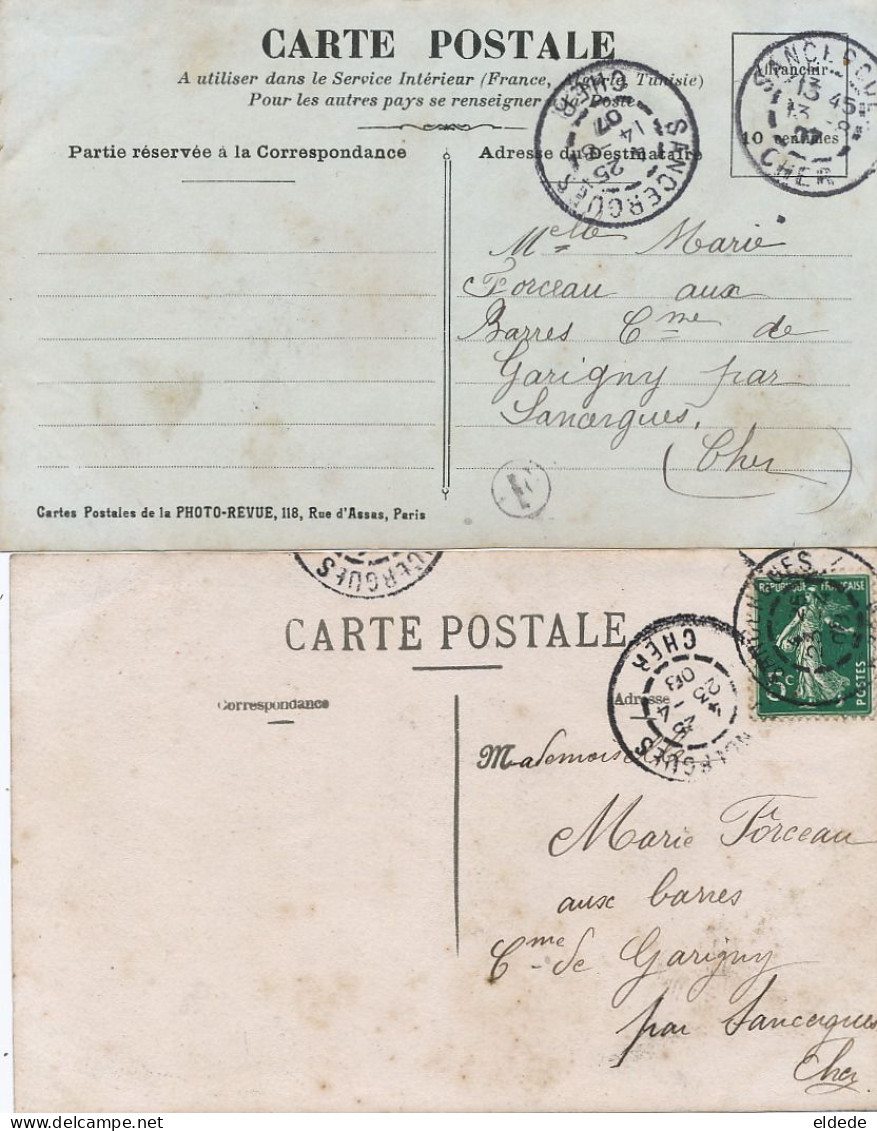 CARTE POSTALE
A utiliser dans le Service Intérieur (France, Algérie, Tunisie)
Pour les autres pays se renseigner à la Poste
Affranchir
10 centimes
CHER
SANCERGUES
CHER
Partie réservée à la Correspondance
Adresse du Destinataire
Melle Marie
Forceau aux
Barres Cme de
Garigny par
Sancergues,
(Cher)
Cartes Postales de la PHOTO-REVUE, 118, Rue d'Assas, Paris
CARTE POSTALE
REPUBLIQUE FRANÇAISE
POSTES
CHER
Correspondance
Adresse
Mademoiselle
Marie Forceau
aux barres
Cme de Garigny
par Sancergues
Cher
eldede